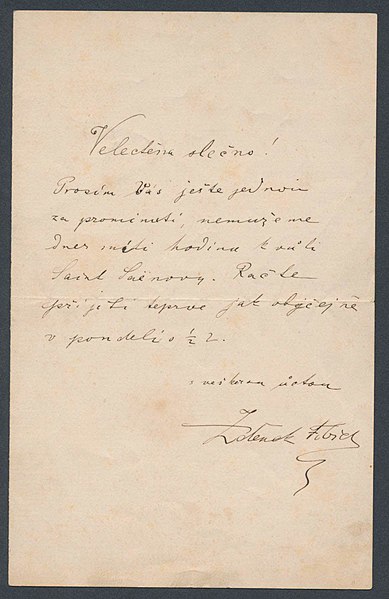 Velectěná slečno!
Prosím Vás ještě jednou
za prominutí nemůžeme
dnes míti hodinu k vůli
Saint Saënovy. Račte
přijeti teprve jak obyčejně
v pondělí o ½ 2.
s veškerou úctou
Zdenek Fibich